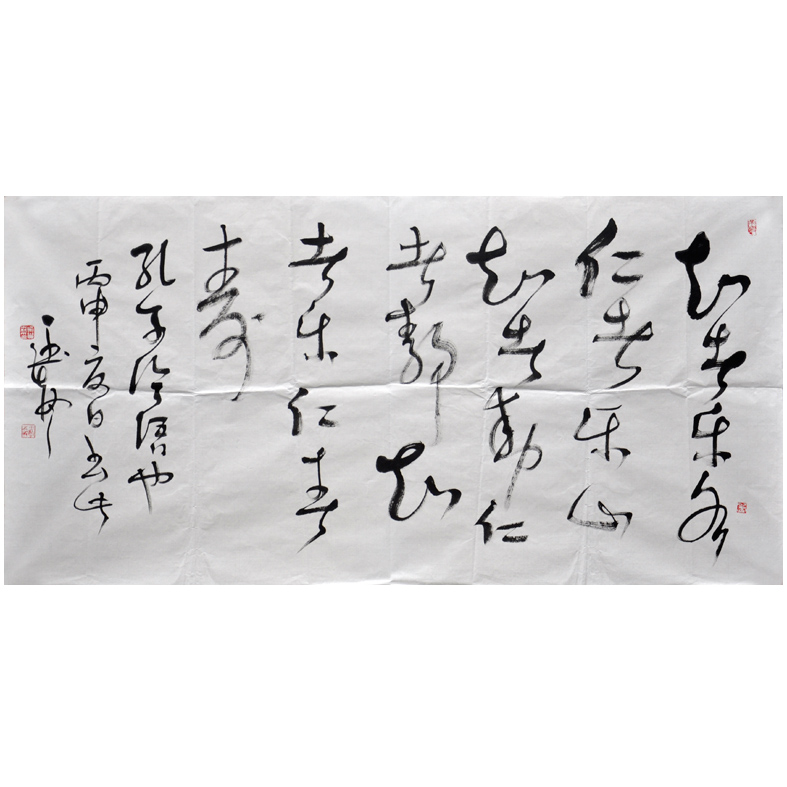 知者乐水
仁者乐山
知者动仁
者静知
者乐仁者
寿
孔子论语也
丙申夏日书